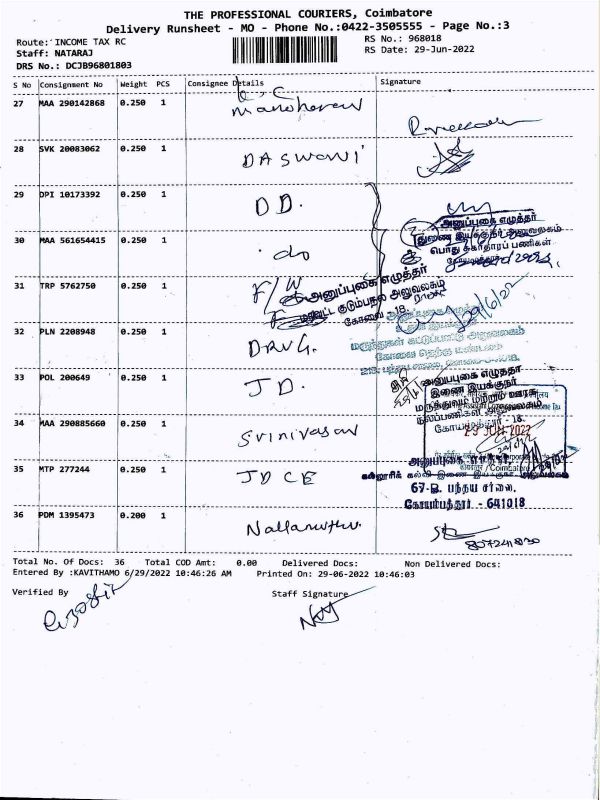 THE PROFESSIONAL COURIERS, Coimbatore
Delivery Runsheet - MO - Phone No.:0422-3505555 - Page No.:3
Route: INCOME TAX RC
RS No.: 968018
Staff: NATARAJ
RS Date: 29-Jun-2022
DRS No.: DCJB96801803
S No Consignment No Weight PCS Consignee Details Signature
27 MAA 290142868 0.250 1 Manoharan
28 SVK 20083062 0.250 1 DASWANI
29 DPI 10173392 0.250 1 DD.
30 MAA 561654415 0.250 1 do
அனுப்புகை எழுத்தர்
இணை இயக்குநர் அலுவலகம்
பொது சுகாதாரப் பணிகள்
31 TRP 5762750 0.250 1 F/W
அனுப்புகை எழுத்தர்
மாவட்ட குடும்பநல அலுவலகம்
கோவை - 18.
29/6/22
32 PLN 2208948 0.250 1 DRUG.
மருந்துகள் கட்டுப்பாட்டு அலுவலகம்
33 POL 200649 0.250 1 JD.
அனுப்புகை எழுத்தர்
இணை இயக்குநர்
மருத்துவம் மற்றும் ஊரக
நலப்பணிகள் அலுவலகம்
கோயமுத்தூர் - 18.
34 MAA 290885660 0.250 1 Srinivasan
29 JUN 2022
35 MTP 277244 0.250 1 JDCE
அனுப்புகை எழுத்தர்,
கல்லூரிக் கல்வி இணை இயக்குநர் அலுவலகம்
67-ஐ, பந்தய சாலை,
கோயம்பத்தூர் - 641018
36 PDM 1395473 0.200 1 Nallamuthu
Total No. Of Docs: 36 Total COD Amt: 0.00 Delivered Docs: Non Delivered Docs:
Entered By :KAVITHAMO 6/29/2022 10:46:26 AM Printed On: 29-06-2022 10:46:03
Verified By Staff Signature